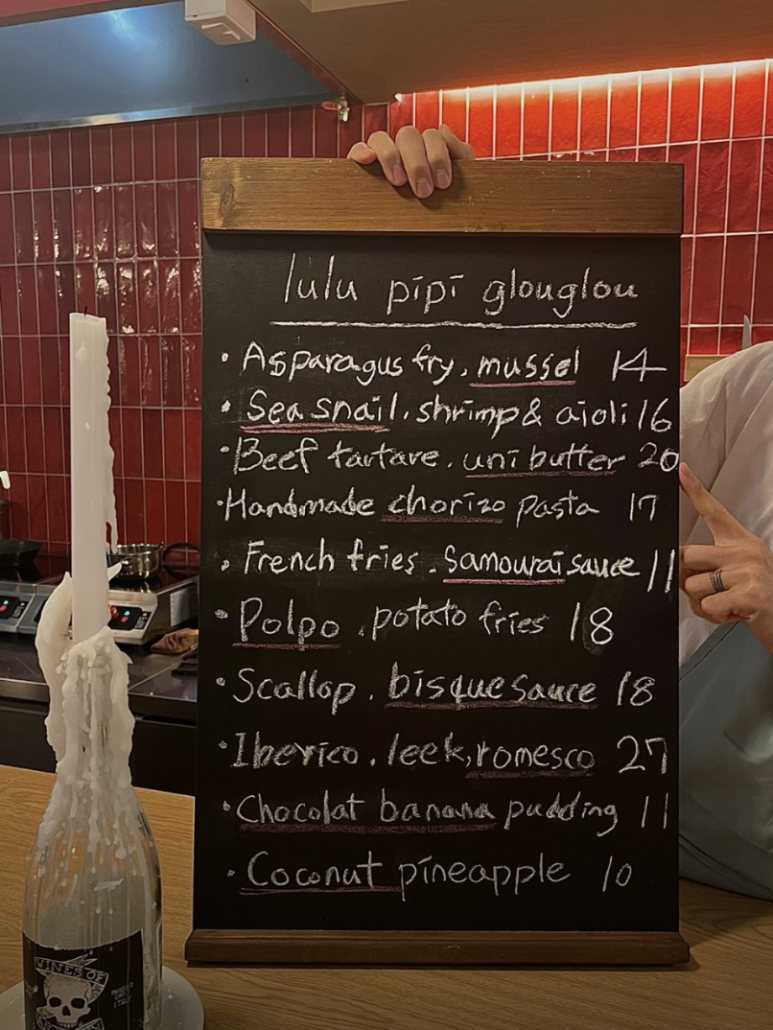 lulu pipi glouglou
· Asparagus fry, mussel 14
· Sea snail, shrimp & aioli 16
· Beef tartare, uni butter 20
· Handmade chorizo pasta 17
· French fries, Samourai sauce 11
· Polpo, potato fries 18
· Scallop, bisque sauce 18
· Iberico, leek, romesco 27
· Chocolat banana pudding 11
· Coconut pineapple 10
WINES OF